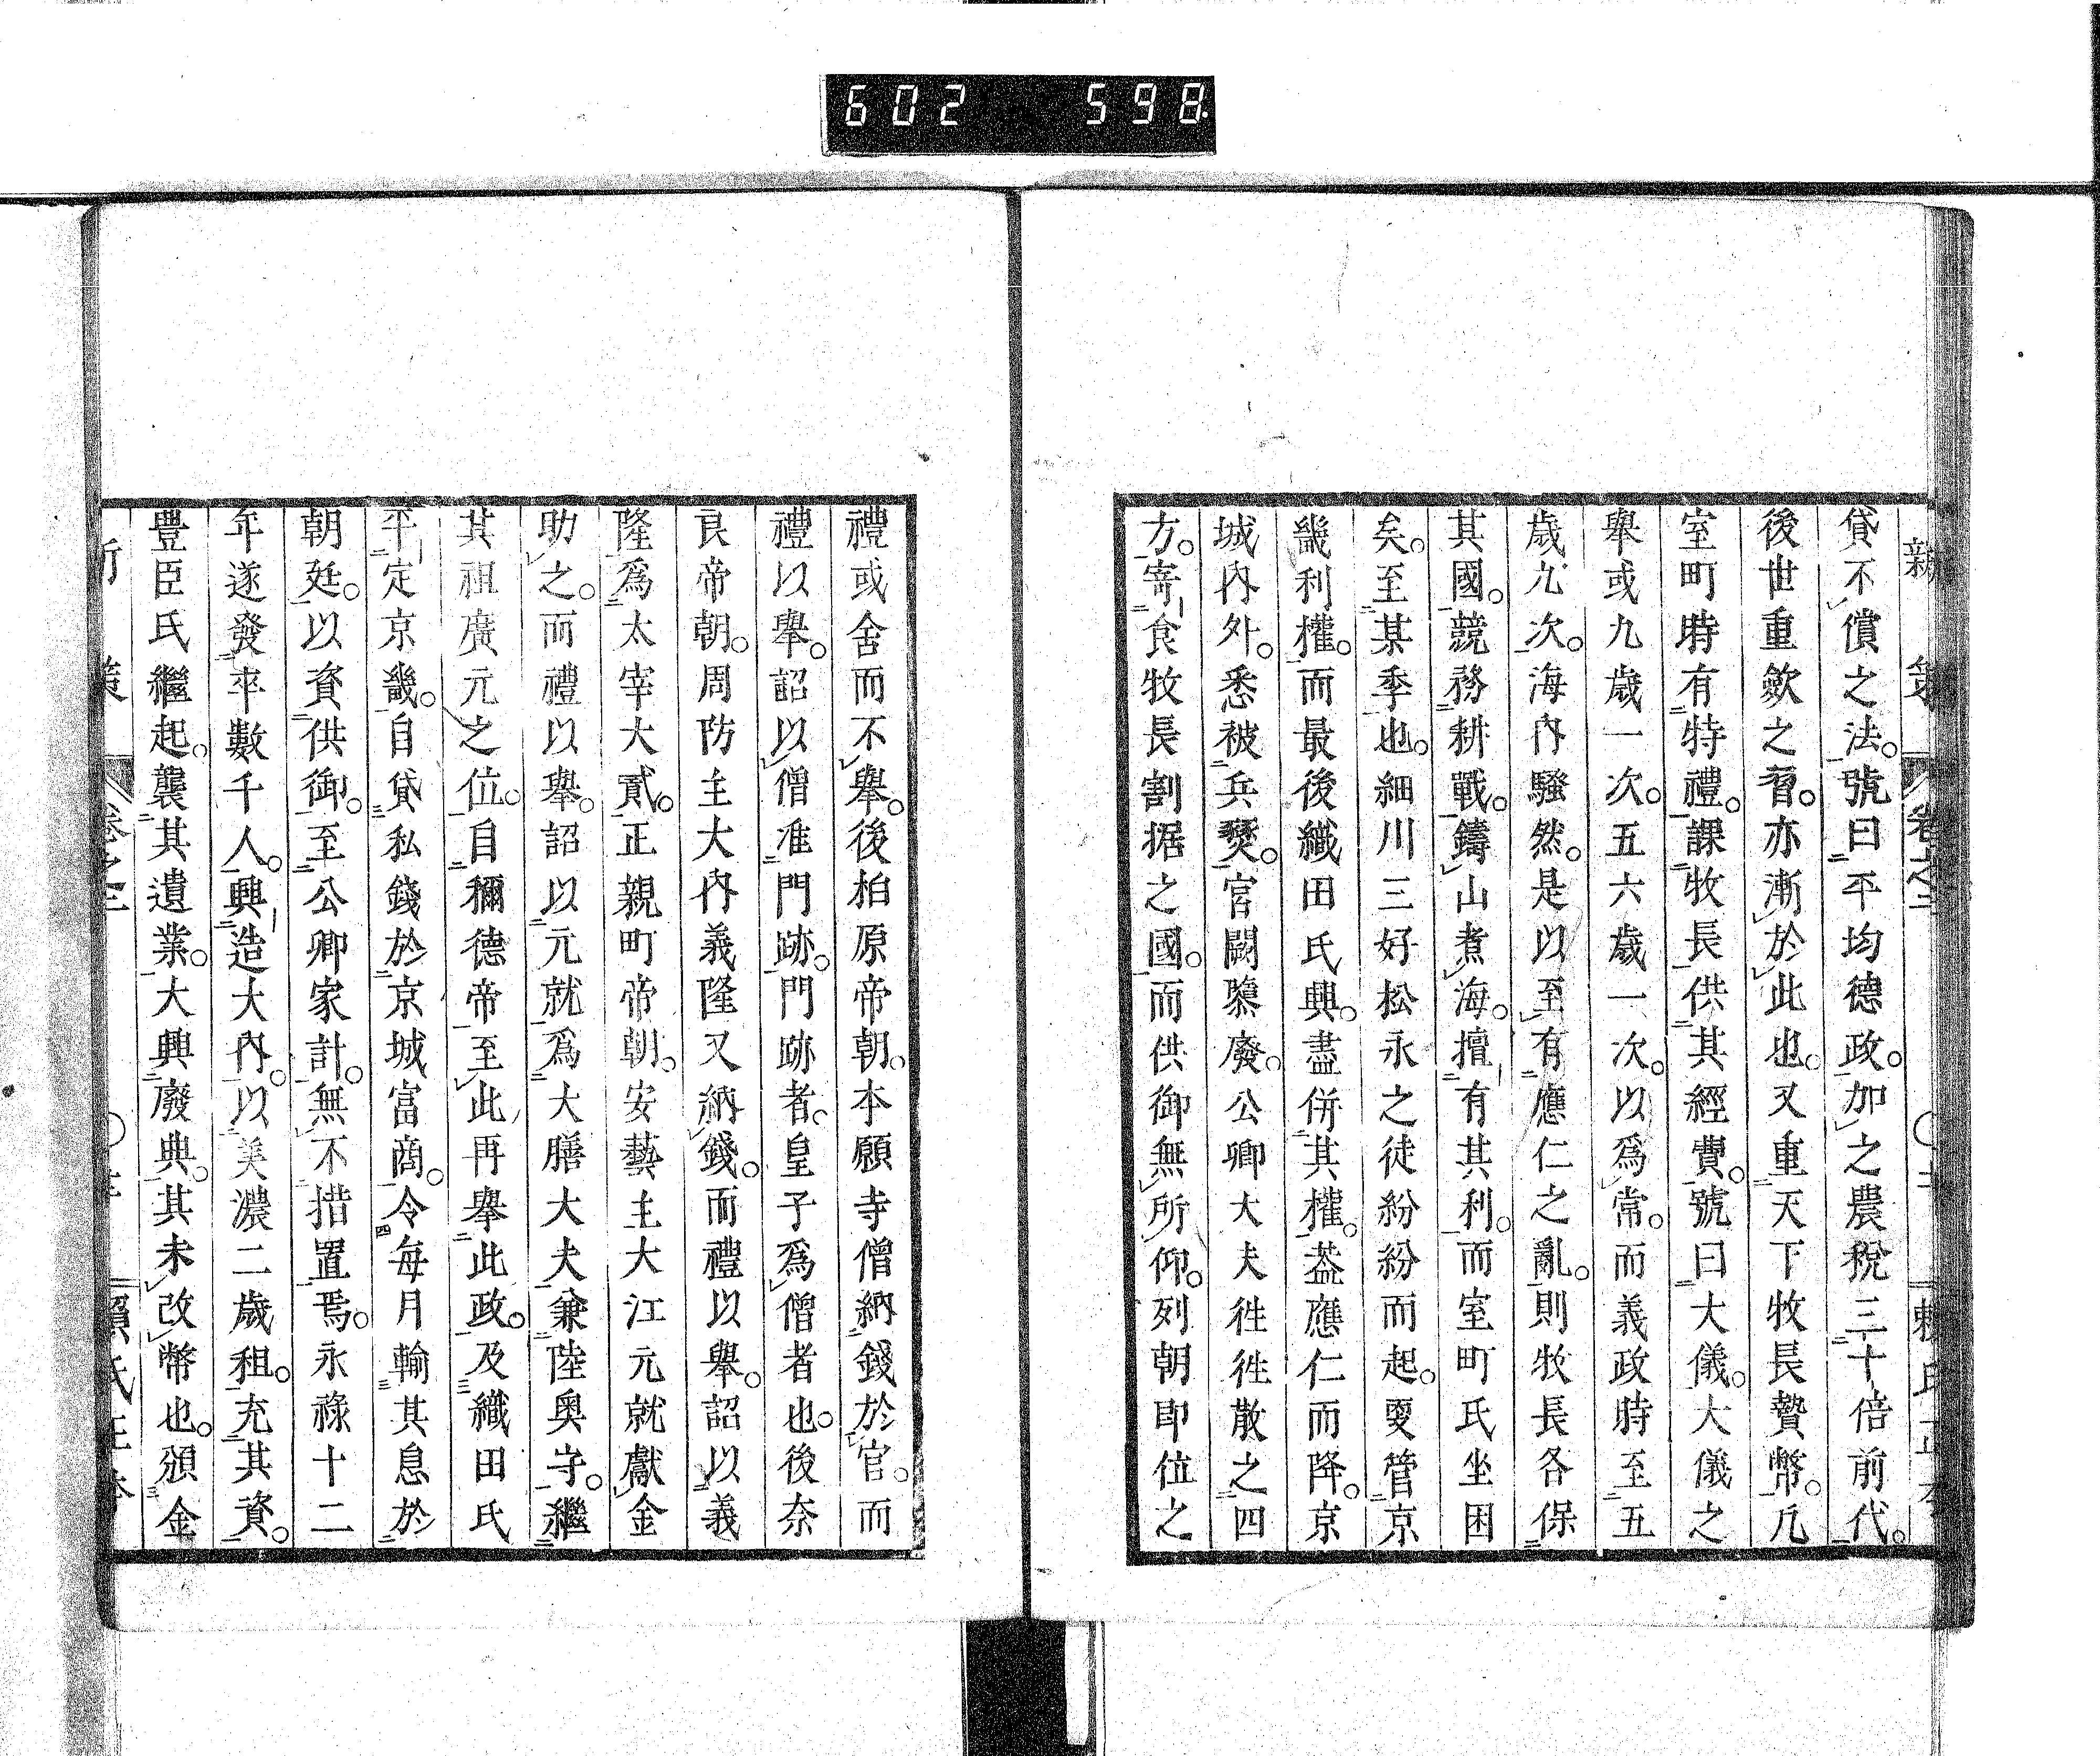 602 598
貸不償之法。號曰平均德政。加之農稅三十倍前代。
後世重斂之習。亦漸於此也。又重天下牧長贄幣。凡
室町時有特禮。課牧長供其經費。號曰大儀。大儀之
舉或九歲一次。五六歲一次。以爲常。而義政時至五
歲九次。海內騷然。是以至有應仁之亂。則牧長各保
其國。競務耕戰。鑄山煮海。擅有其利。而室町氏坐困
矣。至某季也。細川三好松永之徒紛紛而起。更管京
畿利權。而最後織田氏興。盡併其權。葢應仁而降。京
城內外。悉被兵燹。官闕隳廢。公卿大夫徃徃散之四
方。寄食牧長割据之國。而供御無所仰。列朝即位之
禮或舍而不舉。後柏原帝朝。本願寺僧納錢於官。而
禮以舉。詔以僧准門跡。門跡者。皇子爲僧者也。後奈
良帝朝。周防主大內義隆又納錢。而禮以舉。詔以義
隆爲太宰大貳。正親町帝朝。安藝主大江元就獻金
助之。而禮以舉。詔以元就爲大膳大夫兼陸奧守。繼
其祖廣元之位。自稱德帝至此再舉此政。及織田氏
平定京畿。自貸私錢於京城富商。令每月輸其息於
朝廷。以資供御。至公卿家計。無不措置焉。永祿十二
年遂發卒數千人。興造大內。以美濃二歲租。充其資。
豐臣氏繼起。襲其遺業。大興廢典。其未改幣也。頒金